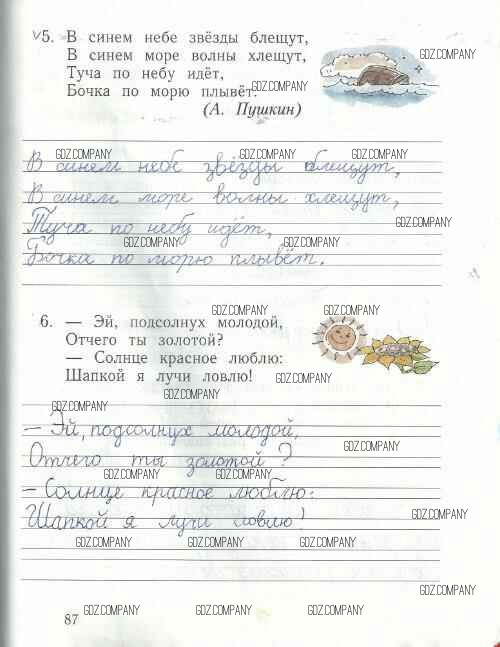 √5. В синем небе звёзды блещут,
В синем море волны хлещут,
Туча по небу идёт,
Бочка по морю плывёт.
(А. Пушкин)
GDZ.COMPANY
GDZ.COMPANY
GDZ.COMPANY GDZ.COMPANY GDZ.COMPANY
В синем небе звёзды блещут,
В синем море волны хлещут,
GDZ.COMPANY
Туча по небу идёт,
GDZ.COMPANY GDZ.COMPANY
Бочка по морю плывёт.
GDZ.COMPANY GDZ.COMPANY
6. — Эй, подсолнух молодой,
Отчего ты золотой?
— Солнце красное люблю:
Шапкой я лучи ловлю!
GDZ.COMPANY
GDZ.COMPANY
GDZ.COMPANY
— Эй, подсолнух молодой,
GDZ.COMPANY
Отчего ты золотой?
GDZ.COMPANY GDZ.COMPANY
— Солнце красное люблю:
GDZ.COMPANY
Шапкой я лучи ловлю!
GDZ.COMPANY GDZ.COMPANY GDZ.COMPANY
GDZ.COMPANY
87 GDZ.COMPANY GDZ.COMPANY GDZ.COMPANY